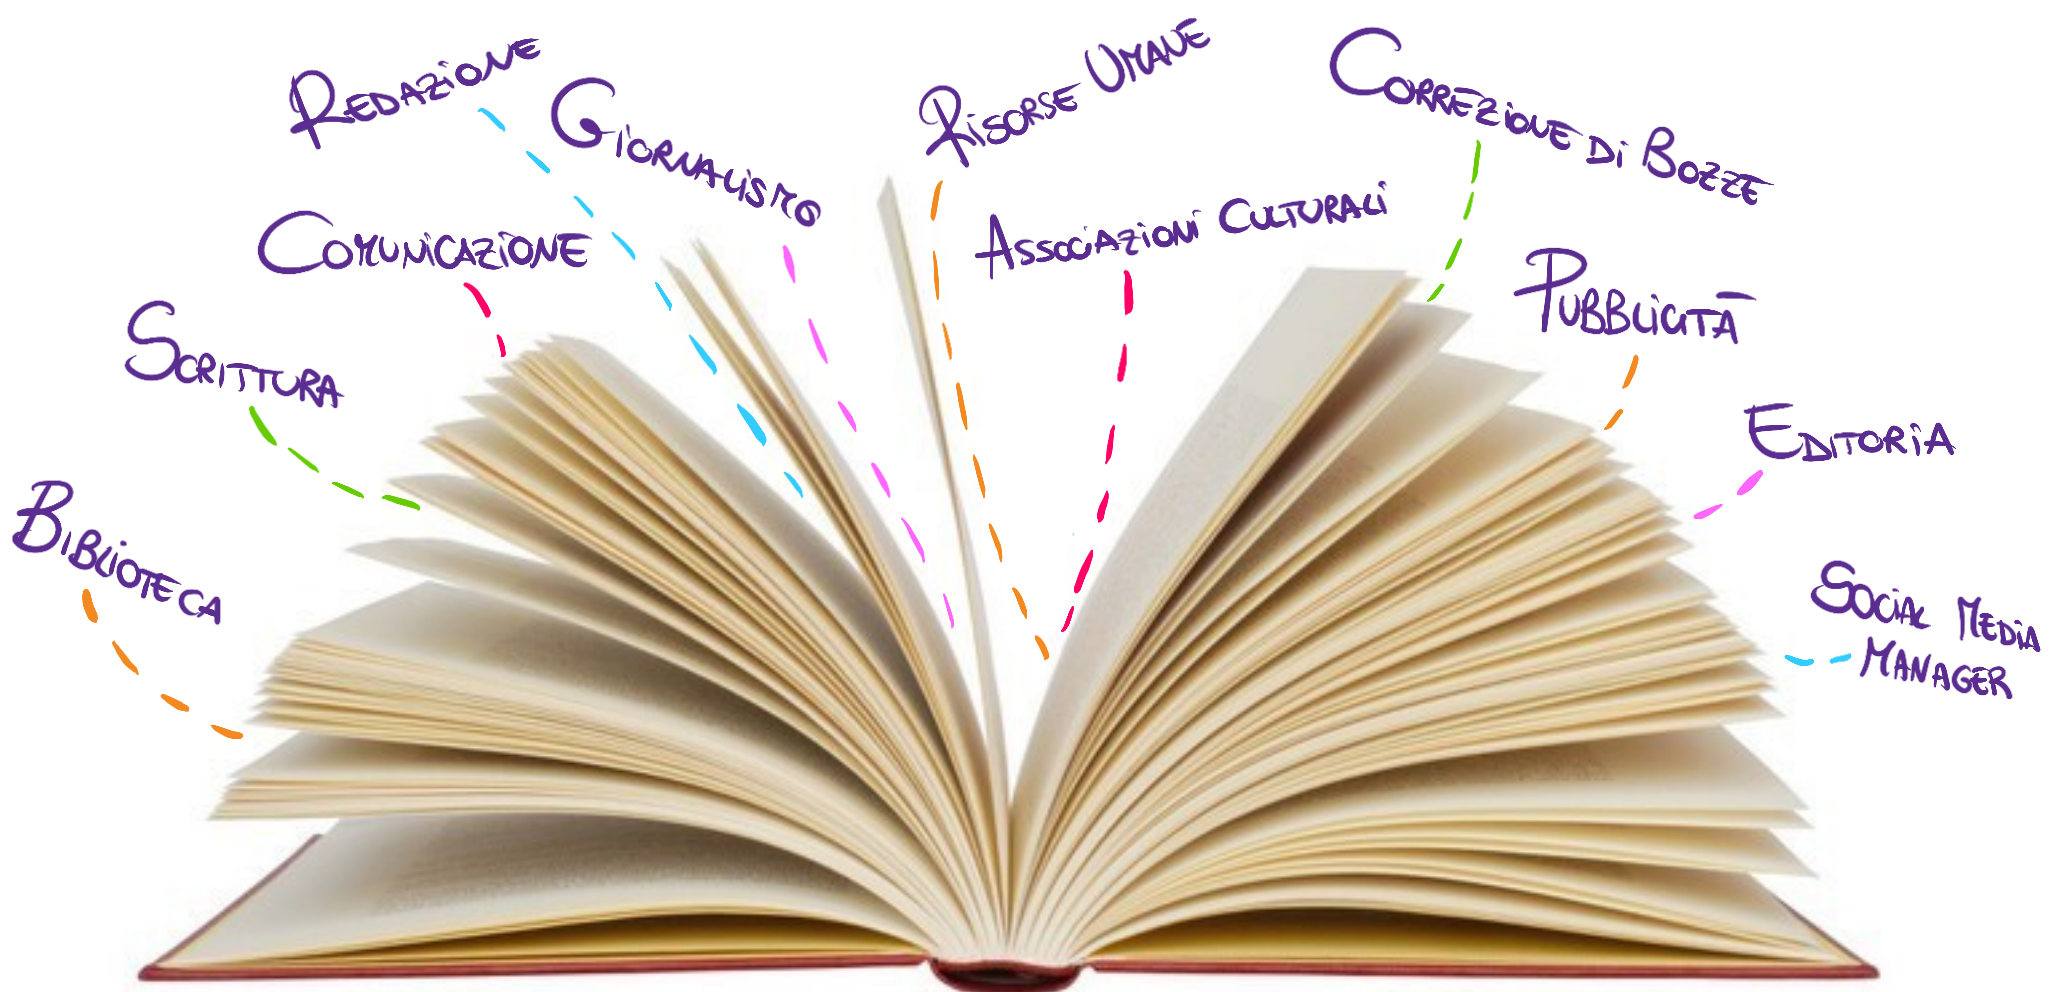 Biblioteca
Scrittura
Comunicazione
Redazione
Giornalismo
Risorse Umane
Associazioni Culturali
Correzione di Bozze
Pubblicità
Editoria
Social Media
Manager